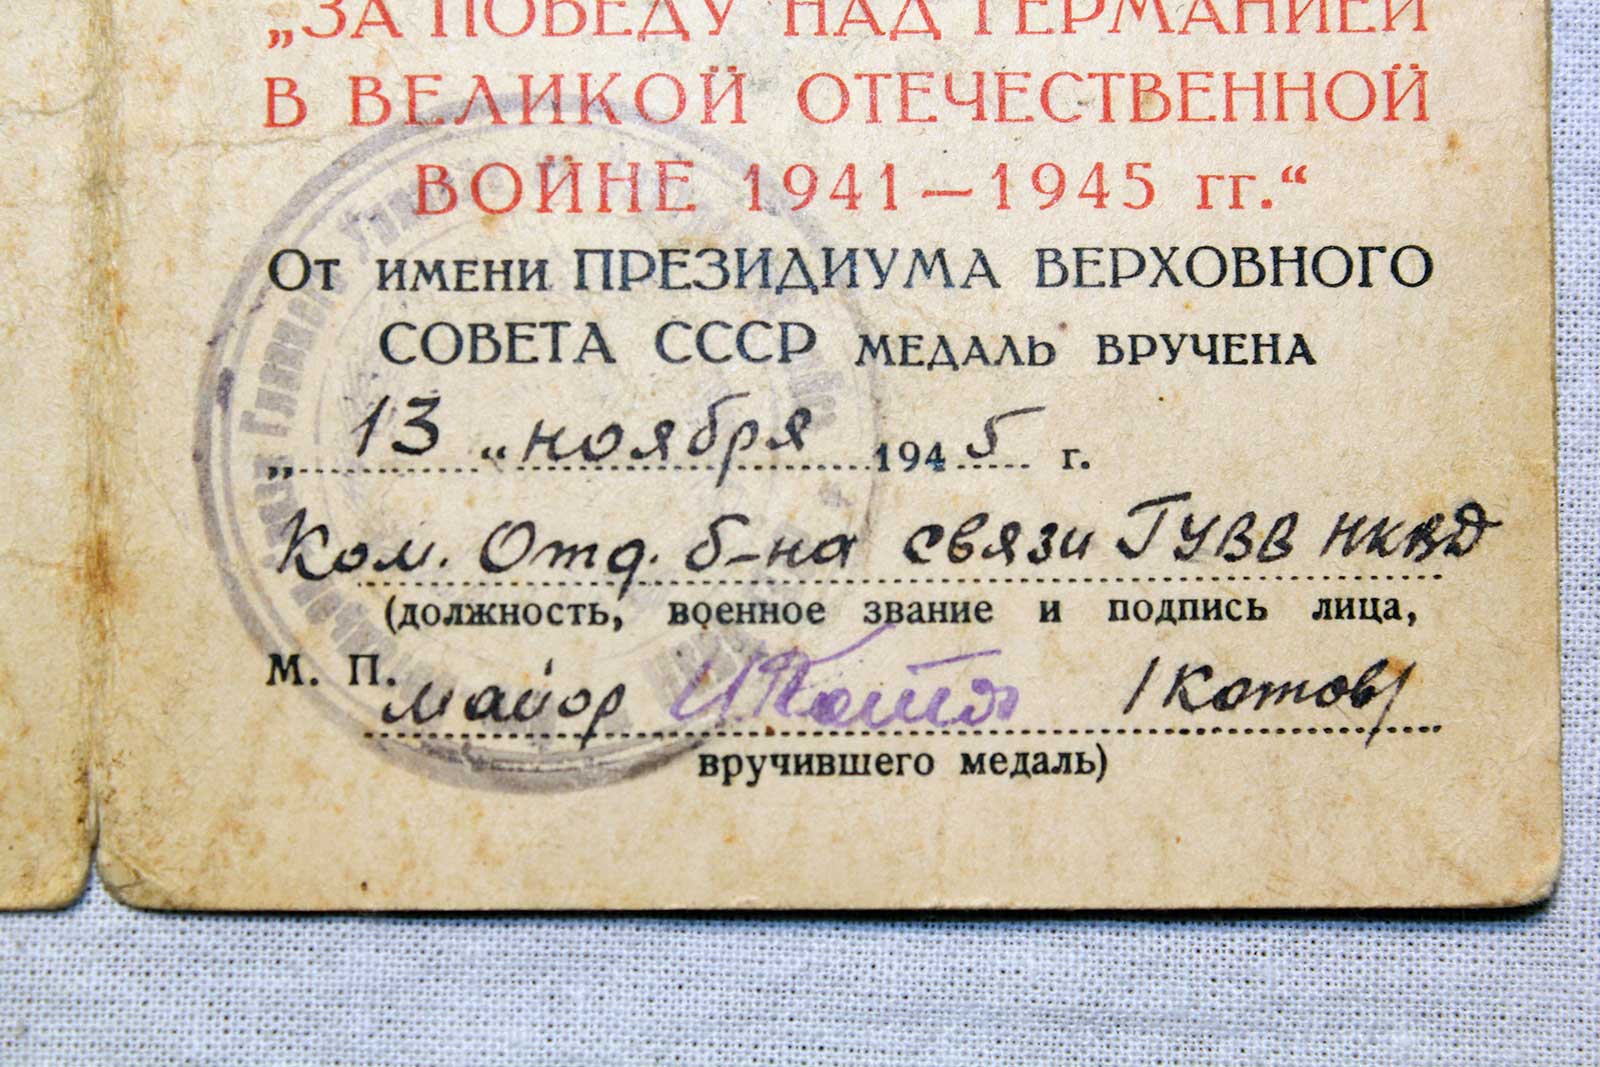 „ЗА ПОБЕДУ НАД ГЕРМАНИЕЙ
В ВЕЛИКОЙ ОТЕЧЕСТВЕННОЙ
ВОЙНЕ 1941—1945 гг.“
От имени ПРЕЗИДИУМА ВЕРХОВНОГО
СОВЕТА СССР медаль вручена
„13“ ноября 1945 г.
Ком. Отд. б-на связи ГУВВ НКВД
(должность, военное звание и подпись лица,
М. П. майор /Котов/
вручившего медаль)